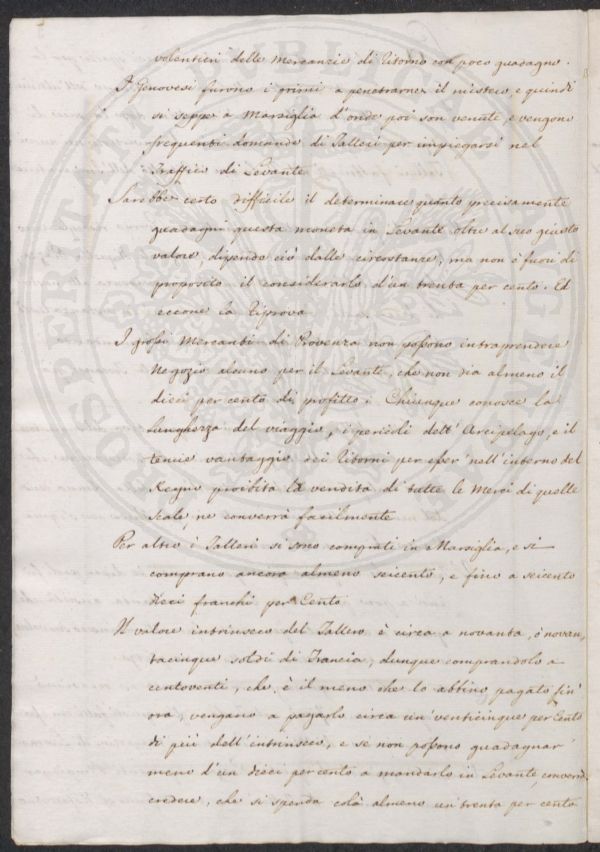 volentieri delle Mercanzie di Ritorno con poco guadagno.
I Genovesi furono i primi a penetrarne il mistero, e quindi
si seppe a Marsiglia d'onde poi son venute, e vengono
frequenti domande di Talleri per impiegarsi nel
Traffico di Levante
Sarebbe certo difficile il determinare quanto precisamente
guadagni questa moneta in Levante oltre al suo giusto
valore, dipende ciò dalle circostanze, ma non è fuori di
proposito il considerarlo d'un trenta per cento. Ed
eccone la Riprova
I grossi Mercanti di Provenza non possono intraprendere
Negozio alcuno per il Levante, che non dia almeno il
dieci per cento di profitto; Chiunque conosce la
lunghezza del viaggio, i pericoli dell'Arcipelago, e il
tenue vantaggio dei Ritorni per esser nell'interno del
Regno proibita la vendita di tutte le Merci di quelle
scale, ne converrà facilmente
Per altro i Talleri si sono comprati in Marsiglia, e si
comprano ancora almeno seicento, e fino a seicento
dieci franchi per Cento
Il valore intrinseco del Tallero è circa a novanta, o novan,
tacinque soldi di Francia, dunque comprandolo a
centoventi, che è il meno che lo abbino pagato fin'
ora, vengano a pagarlo circa un venticinque per Cento
di più dell'intrinseco, e se non possono guadagnar
meno d'un dieci per cento a mandarlo in Levante, converrà
credere, che si spenda colà almeno un trenta per cento
PROSPERITATI PUBLICAE AUGENDAE